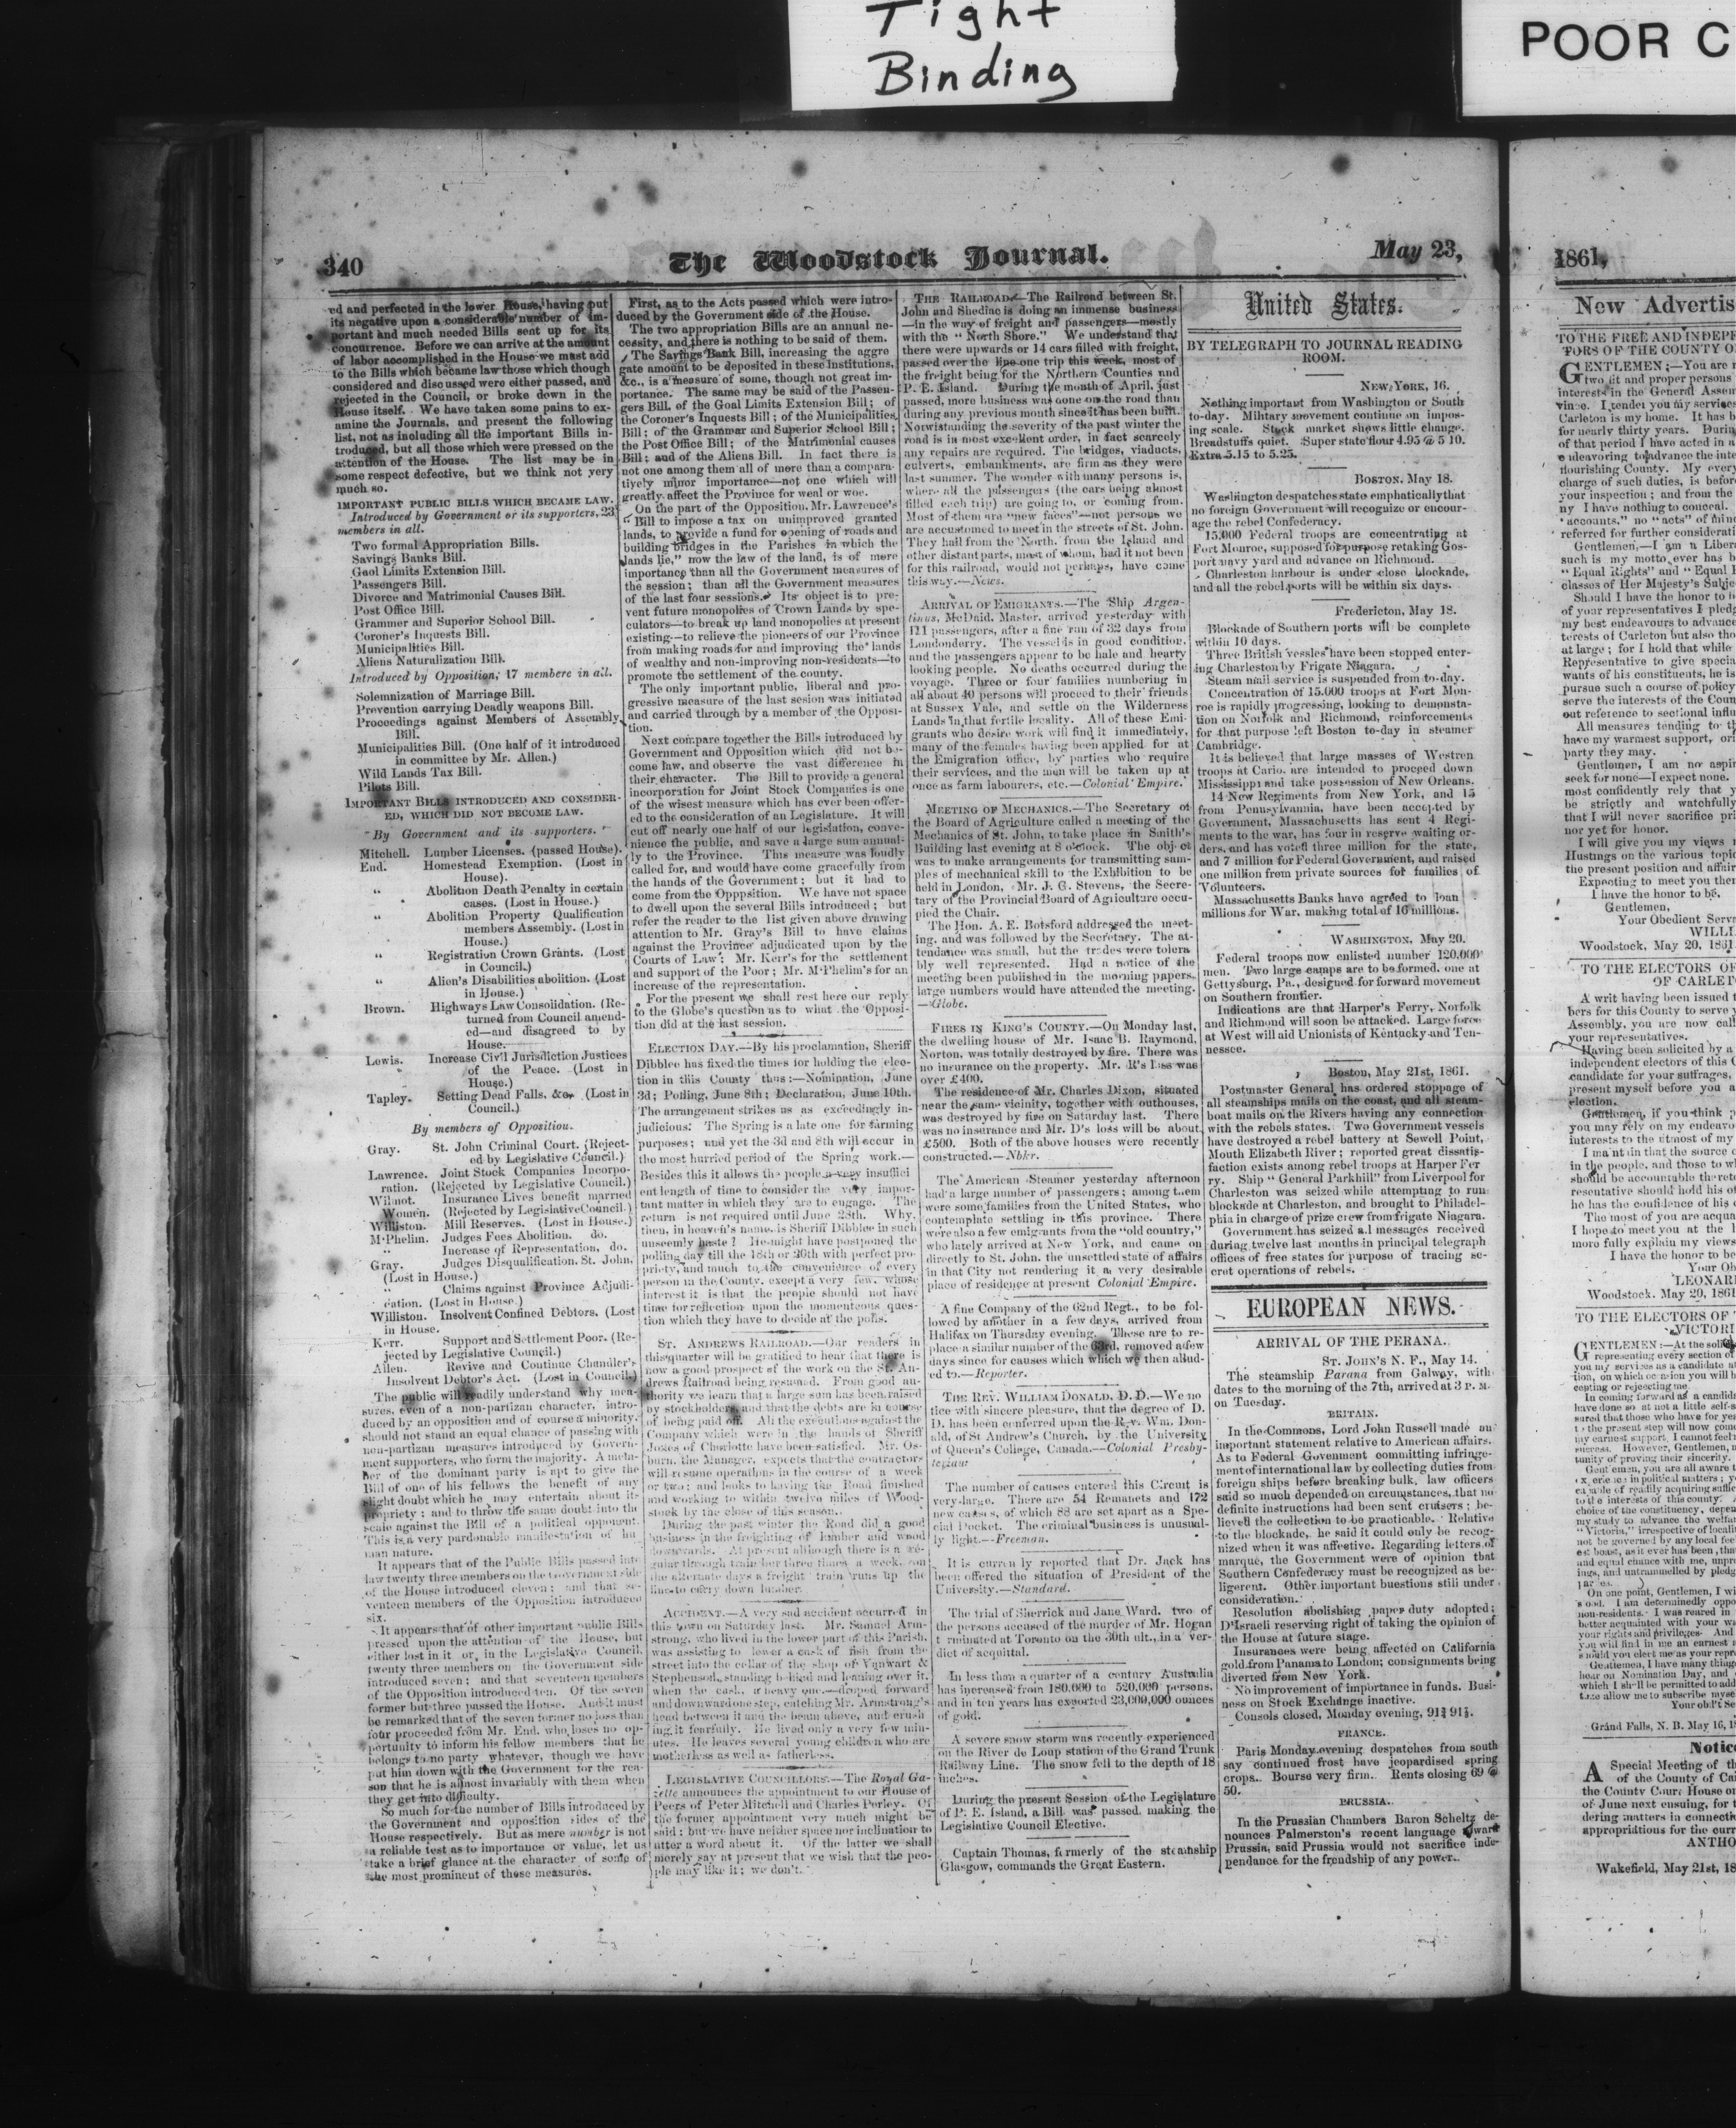 Tight
Binding
POOR C
340
The Woodstock Journal.
May 23,
ed and perfected in the lower House, having put
its negative upon a considerable number of im-
portant and much needed Bills sent up for its
concurrence. Before we can arrive at the amount
of labor accomplished in the House we must add
to the Bills which became law those which though
considered and discussed were either passed, and
rejected in the Council, or broke down in the
House itself. We have taken some pains to ex-
amine the Journals, and present the following
list, not as including all the important Bills in-
troduced, but all those which were pressed on the
attention of the House. The list may be in
some respect defective, but we think not very
much so.
IMPORTANT PUBLIC BILLS WHICH BECAME LAW.
Introduced by Government or its supporters, 23
members in all.
Two formal Appropriation Bills.
Savings Banks Bill.
Gaol Limits Extension Bill.
Passengers Bill.
Divorce and Matrimonial Causes Bill.
Post Office Bill.
Grammer and Superior School Bill.
Coroner's Inquests Bill.
Municipalities Bill.
Aliens Naturalization Bill.
Introduced by Opposition, 17 membere in all.
Solemnization of Marriage Bill.
Prevention carrying Deadly weapons Bill.
Proceedings against Members of Assembly
Bill.
Municipalities Bill. (One half of it introduced
in committee by Mr. Allen.)
Wild Lands Tax Bill.
Pilots Bill.
IMPORTANT BILLS INTRODUCED AND CONSIDER-
ED, WHICH DID NOT BECOME LAW.
By Government and its supporters.
Mitchell. Lumber Licenses. (passed House).
End. Homestead Exemption. (Lost in
House).
" Abolition Death Penalty in certain
cases. (Lost in House.)
" Abolition Property Qualification
members Assembly. (Lost in
House.)
" Registration Crown Grants. (Lost
in Council.)
" Alien's Disabilities abolition. (Lost
in House.)
Brown. Highways Law Consolidation. (Re-
turned from Council amend-
ed—and disagreed to by
House.
Lewis. Increase Civil Jurisdiction Justices
of the Peace. (Lost in
House.)
Tapley. Setting Dead Falls, &c. (Lost in
Council.)
By members of Opposition.
Gray. St. John Criminal Court. (Reject-
ed by Legislative Council.)
Lawrence. Joint Stock Companies Incorpo-
ration. (Rejected by Legislative Council.)
Wilmot. Insurance Lives benefit married
Women. (Rejected by Legislative Council.)
Williston. Mill Reserves. (Lost in House.)
M'Phelim. Judges Fees Abolition. do.
" Increase of Representation, do.
Gray. Judges Disqualification, St. John,
(Lost in House.)
" Claims against Province Adjudi-
cation. (Lost in House.)
Williston. Insolvent Confined Debtors. (Lost
in House.
Kerr. Support and Settlement Poor. (Re-
jected by Legislative Council.)
Allen. Revive and Continue Chandler's
Insolvent Debtor's Act. (Lost in Council.)
The public will readily understand why mea-
sures, even of a non-partizan character, intro-
duced by an opposition and of course a minority,
should not stand an equal chance of passing with
non-partizan measures introduced by Govern-
ment supporters, who form the majority. A mem-
ber of the dominant party is apt to give the
Bill of one of his fellows the benefit of any
slight doubt which he may entertain about its
propriety; and to throw the same doubt into the
scale against the Bill of a political opponent.
This is a very pardonable manifestation of hu
man nature.
It appears that of the Public Bills passed into
law twenty three members on the Government side
of the House introduced eleven; and that se-
venteen members of the Opposition introduced
six.
It appears that of other important public Bills
pressed upon the attention of the House, but
either lost in it or, in the Legislative Council,
twenty three members on the Government side
introduced seven; and that seventeen members
of the Opposition introduced ten. Of the seven
former but three passed the House. And it must
be remarked that of the seven former no less than
four proceeded from Mr. End, who loses no op-
portunity to inform his fellow members that he
belongs to no party whatever, though we have
put him down with the Government for the rea-
son that he is almost invariably with them when
they get into difficulty.
So much for the number of Bills introduced by
the Government and opposition sides of the
House respectively. But as mere number is not
a reliable test as to importance or value, let us
take a brief glance at the character of some of
the most prominent of these measures.
First, as to the Acts passed which were intro-
duced by the Government side of the House.
The two appropriation Bills are an annual ne-
cessity, and there is nothing to be said of them.
The Savings Bank Bill, increasing the aggre
gate amount to be deposited in these Institutions,
&c., is a measure of some, though not great im-
portance. The same may be said of the Passen-
gers Bill, of the Goal Limits Extension Bill; of
the Coroner's Inquests Bill; of the Municipalities
Bill; of the Grammar and Superior School Bill;
the Post Office Bill; of the Matrimonial causes
Bill; and of the Aliens Bill. In fact there is
not one among them all of more than a compara-
tively minor importance—not one which will
greatly affect the Province for weal or woe.
On the part of the Opposition, Mr. Lawrence's
" Bill to impose a tax on unimproved granted
lands, to provide a fund for opening of roads and
building bridges in the Parishes in which the
lands lie," now the law of the land, is of more
importance than all the Government measures of
the session; than all the Government measures
of the last four sessions. Its object is to pre-
vent future monopolies of Crown Lands by spe-
culators—to break up land monopolies at present
existing—to relieve the pioneers of our Province
from making roads for and improving the lands
of wealthy and non-improving non-residents—to
promote the settlement of the county.
The only important public, liberal and pro-
gressive measure of the last sesion was initiated
and carried through by a member of the Opposi-
tion.
Next compare together the Bills introduced by
Government and Opposition which did not be-
come law, and observe the vast difference in
their character. The Bill to provide a general
incorporation for Joint Stock Companies is one
of the wisest measure which has ever been offer-
ed to the consideration of an Legislature. It will
cut off nearly one half of our legislation, conve-
nience the public, and save a large sum annual-
ly to the Province. This measure was loudly
called for, and would have come gracefully from
the hands of the Government; but it had to
come from the Opppsition. We have not space
to dwell upon the several Bills introduced; but
refer the reader to the list given above drawing
attention to Mr. Gray's Bill to have claims
against the Province adjudicated upon by the
Courts of Law; Mr. Kerr's for the settlement
and support of the Poor; Mr. M'Phelim's for an
increase of the representation.
For the present we shall rest here our reply
to the Globe's question as to what the Opposi-
tion did at the last session.
ELECTION DAY.—By his proclamation, Sheriff
Dibblee has fixed the times for holding the elec-
tion in this County thus:—Nomination, June
3d; Polling, June 8th; Declaration, June 10th.
The arrangement strikes us as exceedingly in-
judicious. The Spring is a late one for farming
purposes; and yet the 3d and 8th will occur in
the most hurried period of the Spring work.—
Besides this it allows the people a very insuffici
ent length of time to consider the very impor-
tant matter in which they are to engage. The
return is not required until June 28th. Why,
then, in heaven's name, is Sheriff Dibblee in such
unseemly haste? He might have postponed the
polling day till the 18th or 20th with perfect pro-
priety, and much to the convenience of every
person in the County, except a very few, whose
interest it is that the people should not have
time for reflection upon the momentous ques-
tion which they have to decide at the polls.
ST. ANDREWS RAILROAD.—Our readers in
this quarter will be gratified to hear that there is
now a good prospect of the work on the St. An-
drews Railroad being resumed. From good au-
thority we learn that a large sum has been raised
by stockholders and that the debts are in course
of being paid off. All the executions against the
Company which were in the hands of Sheriff
Jones of Charlotte have been satisfied. Mr. Os-
burn, the Manager, expects that the contractors
will resume operations in the course of a week
or two; and looks to having the Road finished
and working to within twelve miles of Wood-
stock by the close of this season.
During the past winter the Road did a good
business in the freighting of lumber and wood
downwards. At present although there is a re-
gular through train but three times a week, on
the alternate days a freight train runs up the
line to carry down lumber.
ACCIDENT.—A very sad accident occurred in
this town on Saturday last. Mr. Samuel Arm-
strong, who lived in the lower part of this Parish,
was assisting to lower a cask of fish from the
street into the cellar of the shop of Vanwart &
Stephenson, standing behind and leaning over it,
when the cask, a heavy one—droped forward
and downward one step, catching Mr. Armstrong's
head between it and the beam above, and crush
ing it fearfully. He lived only a very few min-
utes. He leaves several young children who are
motherless as well as fatherless.
LEGISLATIVE COUNCILLORS.—The Royal Ga-
zette announces the appointment to our House of
Peers of Peter Mitchell and Charles Perley. Of
the former appointment very much might be
said; but we have neither space nor inclination to
utter a word about it. Of the latter we shall
merely say at present that we wish that the peo-
ple may like it; we don't.
THE RAILROAD.—The Railroad between St.
John and Shediac is doing an immense business
—in the way of freight and passengers—mostly
with the " North Shore." We understand that
there were upwards or 14 cars filled with freight,
passed over the line one trip this week, most of
the freight being for the Northern Counties and
P. E. Island. During the month of April, just
passed, more business was done on the road than
during any previous month since it has been built.
Notwistanding the severity of the past winter the
road is in most excellent order, in fact scarcely
any repairs are required. The bridges, viaducts,
culverts, embankments, are firm as they were
last summer. The wonder with many persons is,
where all the passengers (the cars being almost
filled each trip) are going to, or coming from.
Most of them are "new faces"—not persons we
are accustomed to meet in the streets of St. John.
They hail from the North, from the Island and
other distant parts, most of whom, had it not been
for this railroad, would not perhaps, have come
this way.—News.
ARRIVAL OF EMIGRANTS.—The Ship Argen-
tinus, McDaid, Master, arrived yesterday with
121 passengers, after a fine run of 32 days from
Londonderry. The vessel is in good condition,
and the passengers appear to be hale and hearty
looking people. No deaths occurred during the
voyage. Three or four families numbering in
all about 40 persons will proceed to their friends
at Sussex Vale, and settle on the Wilderness
Lands in that fertile locality. All of these Emi-
grants who desire work will find it immediately,
many of the females having been applied for at
the Emigration office, by parties who require
their services, and the men will be taken up at
once as farm labourers, etc.—Colonial Empire.
MEETING OF MECHANICS.—The Secretary of
the Board of Agriculture called a meeting of the
Mechanics of St. John, to take place in Smith's
Building last evening at 8 o'clock. The object
was to make arrangements for transmitting sam-
ples of mechanical skill to the Exhibition to be
held in London, Mr. J. G. Stevens, the Secre-
tary of the Provincial Board of Agriculture occu-
pied the Chair.
The Hon. A. E. Botsford addressed the meet-
ing, and was followed by the Secretary. The at-
tendance was small, but the trades were tolera
bly well represented. Had a notice of the
meeting been published in the morning papers,
large numbers would have attended the meeting.
—Globe.
FIRES IN KING'S COUNTY.—On Monday last,
the dwelling house of Mr. Isaac B. Raymond,
Norton, was totally destroyed by fire. There was
no insurance on the property. Mr. R's loss was
over £400.
The residence of Mr. Charles Dixon, situated
near the same vicinity, together with outhouses,
was destroyed by fire on Saturday last. There
was no insurance and Mr. D's loss will be about
£500. Both of the above houses were recently
constructed.—Nbkr.
The American Steamer yesterday afternoon
had a large number of passengers; among them
were some families from the United States, who
contemplate settling in this province. There
were also a few emigrants from the "old country,"
who lately arrived at New York, and came on
directly to St. John, the unsettled state of affairs
in that City not rendering it a very desirable
place of residence at present Colonial Empire.
A fine Company of the 62nd Regt., to be fol-
lowed by another in a few days, arrived from
Halifax on Thursday evening. These are to re-
place a similar number of the 63rd, removed a few
days since for causes which which we then allud-
ed to.—Reporter.
THE REV. WILLIAM DONALD, D. D.—We no
tice with sincere pleasure, that the degree of D.
D. has been conferred upon the Rev. Wm. Don-
ald, of St Andrew's Church, by the University
of Queen's College, Canada.—Colonial Presby-
terian.
The number of causes entered this Circuit is
very large. There are 54 Remanets and 172
new causes, of which 88 are set apart as a Spe-
cial Docket. The criminal business is unusual-
ly light.—Freeman.
It is curren ly reported that Dr. Jack has
been offered the situation of President of the
University.—Standard.
The trial of Sherrick and Jane Ward, two of
the persons accused of the murder of Mr. Hogan
t rminated at Toronto on the 30th ult., in a ver-
dict of acquittal.
In less than a quarter of a century Australia
has increased from 180,000 to 520,000 persons,
and in ten years has exported 23,000,000 ounces
of gold.
A severe snow storm was recently experienced
on the River de Loup station of the Grand Trunk
Railway Line. The snow fell to the depth of 18
inches.
During the present Session of the Legislature
of P. E. Island, a Bill was passed, making the
Legislative Council Elective.
Captain Thomas, formerly of the steamship
Glasgow, commands the Great Eastern.
United States.
BY TELEGRAPH TO JOURNAL READING
ROOM.
NEW YORK, 16.
Nothing important from Washington or South
to-day. Miltary movement continue on impos-
ing scale. Stock market shows little change.
Breadstuffs quiet. Super state flour 4.95 @ 5 10.
Extra 5.15 to 5.25.
BOSTON, May 18.
Washington despatches state emphatically that
no foreign Government will recognize or encour-
age the rebel Confederacy.
15.000 Federal troops are concentrating at
Fort Monroe, supposed for purpose retaking Gos-
port navy yard and advance on Richmond.
Charleston harbour is under close blockade,
and all the rebel ports will be within six days.
Fredericton, May 18.
Blockade of Southern ports will be complete
within 10 days.
Three British vessles have been stopped enter-
ing Charleston by Frigate Niagara.
Steam mail service is suspended from to-day.
Concentration of 15.000 troops at Fort Mon-
roe is rapidly progressing, looking to demonsta-
tion on Norfolk and Richmond, reinforcements
for that purpose left Boston to-day in steamer
Cambridge.
It is believed that large masses of Westren
troops at Cario, are intended to proceed down
Mississippi and take possession of New Orleans.
14 New Regiments from New York, and 15
from Pennsylvannia, have been accepted by
Government, Massachusetts has sent 4 Regi-
ments to the war, has four in reserve waiting or-
ders, and has voted three million for the state,
and 7 million for Federal Government, and raised
one million from private sources for families of
Volunteers.
Massachusetts Banks have agreed to loan
millions for War, making total of 16 millions.
WASHINGTON, May 20.
Federal troops now enlisted number 120.000
men. Two large camps are to be formed, one at
Gettysburg, Pa., designed for forward movement
on Southern frontier.
Indications are that Harper's Ferry, Norfolk
and Richmond will soon be attacked. Large force
at West will aid Unionists of Kentucky and Ten-
nessee.
Boston, May 21st, 1861.
Postmaster General has ordered stoppage of
all steamships mails on the coast, and all steam-
boat mails on the Rivers having any connection
with the rebels states. Two Government vessels
have destroyed a rebel battery at Sewell Point,
Mouth Elizabeth River; reported great dissatis-
faction exists among rebel troops at Harper Fer
ry. Ship " General Parkhill" from Liverpool for
Charleston was seized while attempting to run
blockade at Charleston, and brought to Philadel-
phia in charge of prize crew from frigate Niagara.
Government has seized all messages received
during twelve last months in principal telegraph
offices of free states for purpose of tracing se-
cret operations of rebels.
EUROPEAN NEWS.
ARRIVAL OF THE PERANA.
ST. JOHN'S N. F., May 14.
The steamship Parana from Galway, with
dates to the morning of the 7th, arrived at 3 P. M.
on Tuesday.
BRITAIN.
In the Commons, Lord John Russell made an
important statement relative to American affairs.
As to Federal Government committing infringe-
ment of international law by collecting duties from
foreign ships before breaking bulk, law officers
said so much depended on circumstances, that no
definite instructions had been sent cruisers; be-
lieved the collection to be practicable. Relative
to the blockade, he said it could only be recog-
nized when it was affective. Regarding letters of
marque, the Government were of opinion that
Southern Confederacy must be recognized as be-
ligerent. Other important buestions still under
consideration.
Resolution abolishing paper duty adopted;
D'Israeli reserving right of taking the opinion of
the House at future stage.
Insurances were being affected on California
gold from Panama to London; consignments being
diverted from New York.
No improvement of importance in funds. Busi-
ness on Stock Exchange inactive.
Consols closed, Monday evening,
FRANCE.
Paris Monday evening despatches from south
say continued frost have jeopardised spring
crops. Bourse very firm. Rents closing 69 @
50.
PRUSSIA.
In the Prussian Chambers Baron Scheltz de-
nounces Palmerston's recent language toward
Prussia, said Prussia would not sacrifice inde-
pendance for the frendship of any power.
1861,
New Advertis
TO THE FREE AND INDEPE
TORS OF THE COUNTY O
GENTLEMEN;—You are
two fit and proper persons
interests in the General Assem
vince. I tender you my services
Carleton is my home. It has b
for nearly thirty years. During
of that period I have acted in a
endeavoring to advance the inte
flourishing County. My every
charge of such duties, is before
your inspection; and from the
ny I have nothing to conceal.
" accounts," no "acts" of mine
referred for further considerati
Gentlemen,—I am a Libera
such is my motto ever has b
" Equal Rights" and " Equal
classes of Her Majesty's Subje
Should I have the honor to b
of your representatives I pledg
my best endeavours to advance
terests of Carleton but also tho
at large; for I hold that while
Representative to give specia
wants of his constituents, he is
pursue such a course of policy
serve the interests of the Coun
out reference to sectional influ
All measures tending to th
have my warmest support, ori
party they may.
Gentlemen, I am no aspir
seek for none—I expect none.
most confidently rely that y
be strictly and watchfully
that I will never sacrifice pri
nor yet for honor.
I will give you my views
Hustings on the various topic
the present position and affair
Expecting to meet you then
I have the honor to be,
Gentlemen,
Your Obedient Serv
WILLI
Woodstock, May 20, 1861
TO THE ELECTORS OF
OF CARLET
A writ having been issued
bers for this County to serve
Assembly, you are now call
your representatives.
Having been solicited by a
independent electors of this
candidate for your suffrages,
present myself before you a
election.
Gentlemen, if you think
you may rely on my endeavo
interests to the utmost of my
I ma nt in that the source
in the people, and those to wh
should be accountable thereto
resentative should hold his of
he has the confidence of his
The most of you are acqua
I hope to meet you at the
more fully explain my views
I have the honor to be
Your Ob
LEONAR
Woodstock, May 20, 1861
TO THE ELECTORS OF
VICTORI
GENTLEMEN:—At the soli
representing every section of
you my services as a candidate
tion, on which occasion you will
cepting or rejecting me.
In coming forward as a candida
have done so at not a little self-s
sured that those who have for yea
t the present step will now com
my earnest support, I cannot feel
success. However, Gentlemen,
tunity of proving their sincerity.
Gent emen, you are all aware
in political matters;
of readily acquiring suffic
to the interests of this county.
choice of the constituency, depen
my study to advance the welfar
"Victoria," irrespective of locali
not be governed by any local fee
est boast, as it ever has been, tha
and equal chance with me, unpr
ings, and untrammelled by pledg
On one point, Gentlemen, I wi
I am determinedly oppo
non-residents. I was reared in
better acquainted with your wa
your rights and privileges. And
you will find in me an earnest
should you elect me as your repre
Gentlemen, I have many things
hear on Nomination Day, and
which I shall be permitted to add
time allow me to subscribe myse
Your ob't Se
Grand Falls, N. B. May 16, 1
Notice
A Special Meeting of th
of the County of Ca
the County Court House on
of June next ensuing, for t
dering matters in connecti
appropriations for the curr
ANTHO
Wakefield, May 21st, 18